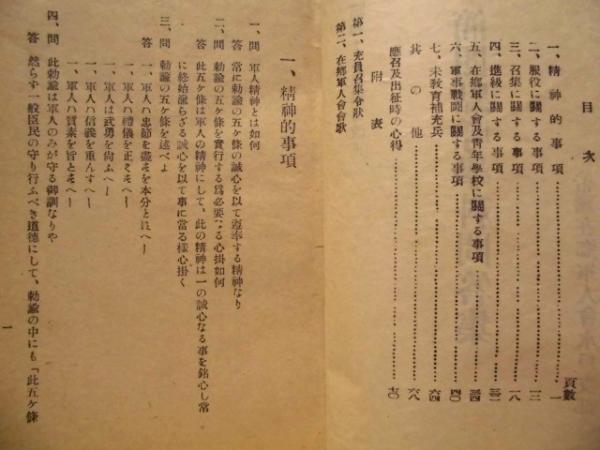 目次
頁數
一、精神的事項……一
二、服役に關する事項……一三
三、召集に關する事項……一八
四、進級に關する事項……三二
五、在郷軍人會及靑年學校に關する事項……三四
六、軍事戰鬪に關する事項……四〇
七、未敎育補充兵……六四
其の他……六八
應召及出征時の心得……七〇
附表
第一、充員召集令狀
第二、在郷軍人會會歌
一、精神的事項
一、問 軍人精神とは如何
答 常に勅諭の五ヶ條の誠心を以て遵奉する精神なり
二、問 勅諭の五ヶ條を實行する爲必要なる心掛如何
答 此五ヶ條は軍人の精神にして、此の精神は一の誠心なる事を銘心し常
に終始渝らざる誠心を以て事に當る樣心掛く
三、問 勅諭の五ヶ條を述べよ
答 一、軍人ハ忠節を盡そを本分とはへし
一、軍人ハ禮儀を正そへし
一、軍人ハ武勇を尙ふへし
一、軍人ハ信義を重んすへし
一、軍人ハ質素を旨とそへし
四、問 此勅諭は軍人のみが守る御訓なりや
答 然らず一般臣民の守り行ふべき道德にして、勅諭の中にも「此五ヶ條
一